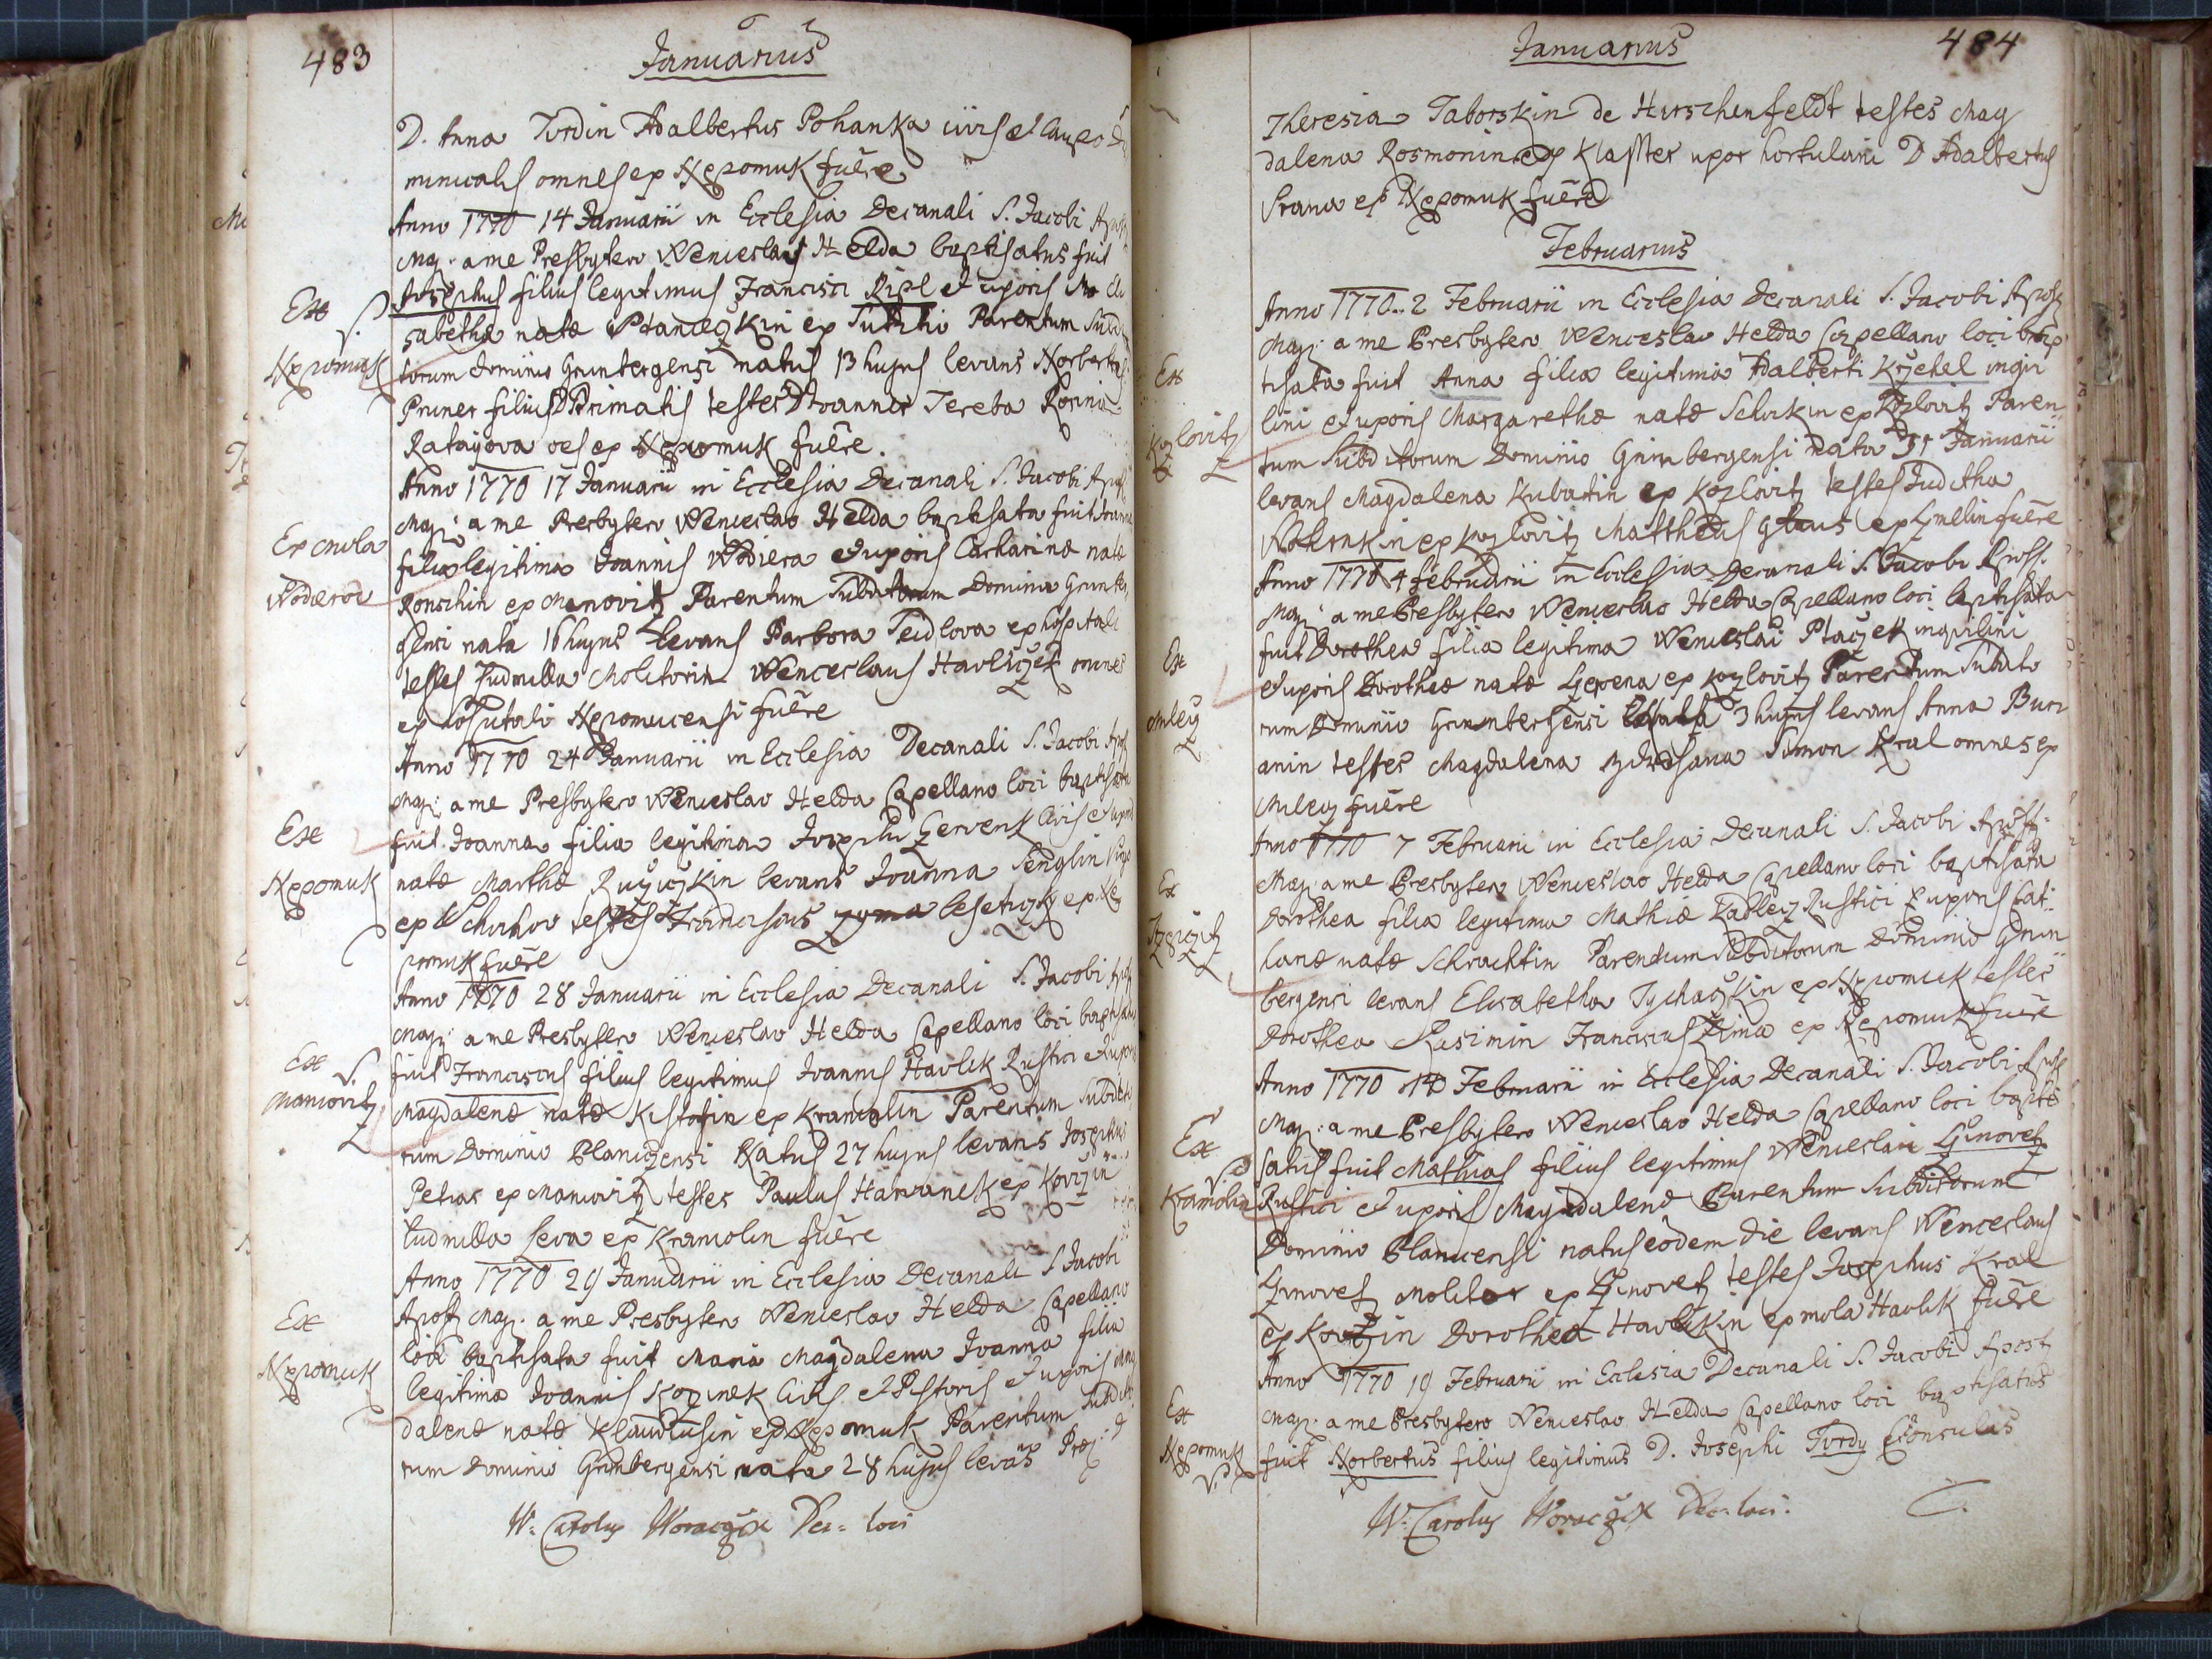 483
Januarius
D. Anna Turdin Adalbertus Pohanka civis et
minicalis omnes ex Nepomuk fuere
Anno 1770 14 Januarii in Ecclesia Decanali S. Jacobi Apost
Maj: a me Presbytero Wenceslao Helda baptisatus fuit
Ex
Josephus filius legitimus Francisci Ripl et uxoris Eli
sabethæ natæ Ptaneczkin ex Parentum Subdi
Nepomuk
torum Dominio Grunbergensi natus 13 hujus levans Norbertus
Pruner filius D Primatis testes Joannes Tereba Rosina
Ratayova oes ex Nepomuk fuere.
Anno 1770 17 Januarii in Ecclesia Decanali S. Jacobi Apost
Maj: a me Presbytero Wenceslao Helda baptisata fuit Joanna
Ex mola
filia legitima Joannis Wodiera et uxoris Catharinæ natæ
Ronschin ex Manovitz Parentum Subditorum Dominio Grunber
gensi nata 16 hujus levans Barbora Seidlova ex hospitali
testes Ludmilla Molitorin Wenceslaus Havliczek omnes
ex hospitali Nepomucensi fuere
Anno 1770 24 Januarii in Ecclesia Decanali S. Jacobi Apost
Maj: a me Presbytero Wenceslao Helda Capellano loci baptisata
Ex
fuit Joanna filia legitima Josephi Czervenk Civis et uxoris
Nepomuk
natæ Marthæ Ruziczkin levans Joanna Senglin
ex testes Franciscus besetezky ex Ne
pomuk fuere
Anno 1770 28 Januarii in Ecclesia Decanali S. Jacobi Apost
Maj: a me Presbytero Wenceslao Helda Capellano loci baptisatus
Ex
fuit Franciscus filius legitimus Joannis Havlik Rustici et uxoris
Manovitz
Magdalenæ natæ Kistofin ex Kramolin Parentum Subdito
rum Dominio Planiczensi Natus 27 hujus levans Josephus
Petras ex Manovitz testes Paulus Harvanek ex Kovczin
Ludmilla Seva ex Kramolin fuere
Anno 1770 29 Januarii in Ecclesia Decanali S Jacobi
Apost Maj: a me Presbytero Wenceslao Helda Capellano
Ex
loci baptisata fuit Maria Magdalena Joanna filia
Nepomuk
legitima Joannis Kozinek Civis et Pistoris et uxoris Mag
dalenæ natæ Klaudiusin ex Nepomuk Parentum Subdito
rum Dominio Grunbergensi nata 28 hujus levans
W: Carolus Woraczek Dec: loci
Januarius
484
Theresia Taborskin de Hirschenfeldt testes Mag
dalena Rosmonin ex Klaster uxor hortulani D Adalbertus
Srana ex Nepomuk fuere
Februarius
Anno 1770 2 Februarii in Ecclesia Decanali S. Jacobi Apost
Maj: a me Presbytero Wenceslao Helda Capellano loci bap
Ex
tisata fuit Anna filia legitima Adalberti Krzehel inqui
Kozlovitz
lini et uxoris Margarethæ natæ Schukin ex Kozlovitz Paren
tum Subditorum Dominio Grunbergensi nata 31 Januarii
levans Magdalena Kubatin ex Kozlovitz testes Juditha
ex Kozlovitz Matthæus Glaus ex Zmelin fuere
Anno 1770 4 Februarii in Ecclesia Decanali S. Jacobi Apost.
Maj: a me Presbytero Wenceslao Helda Capellano loci baptisata
Ex
fuit Dorothea filia legitima Wenceslai Ptaczek inquilini
et uxoris Dorotheæ natæ ex Kozlovitz Parentum Subdito
rum Dominio Grunbergensi 3 hujus levans Anna Buri
anin testes Magdalena Simon Kral omnes ex
Milecz fuere
Anno 1770 7 Februarii in Ecclesia Decanali S. Jacobi Apost
Maj: a me Presbytero Wenceslao Helda Capellano loci baptisata
Ex
Dorothea filia legitima Mathiæ Kadlecz Rustici et uxoris Cat:
natæ Schrachtin Parentum Subditorum Dominio Grun
bergensi levans Elisabetha Tychaczkin ex Nepomuk testes
Dorothea Rusimin Franciscus Zima ex Nepomuk fuere
Anno 1770 14 Februarii in Ecclesia Decanali S. Jacobi Apost
Maj: a me Presbytero Wenceslao Helda Capellano loci bapti
Ex
satus fuit Mathias filius legitimus Wenceslai Czinovetz
Kramolin
Rustici et uxoris Magdalenæ Parentum Subditorum
Dominio Planicensi natus eodem die levans Wenceslaus
Czinovetz Molitor ex Czinovetz testes Josephus Kral
ex Kovczin Dorothea Havlikin ex mola Havlik fuere
Anno 1770 19 Februarii in Ecclesia Decanali S. Jacobi Apost
Ex
Maj: a me Presbytero Wenceslao Helda Capellano loci baptisatus
Nepomuk
fuit Norbertus filius legitimus D. Josephi Turdy Consulis
W: Carolus Woraczek Dec: loci.